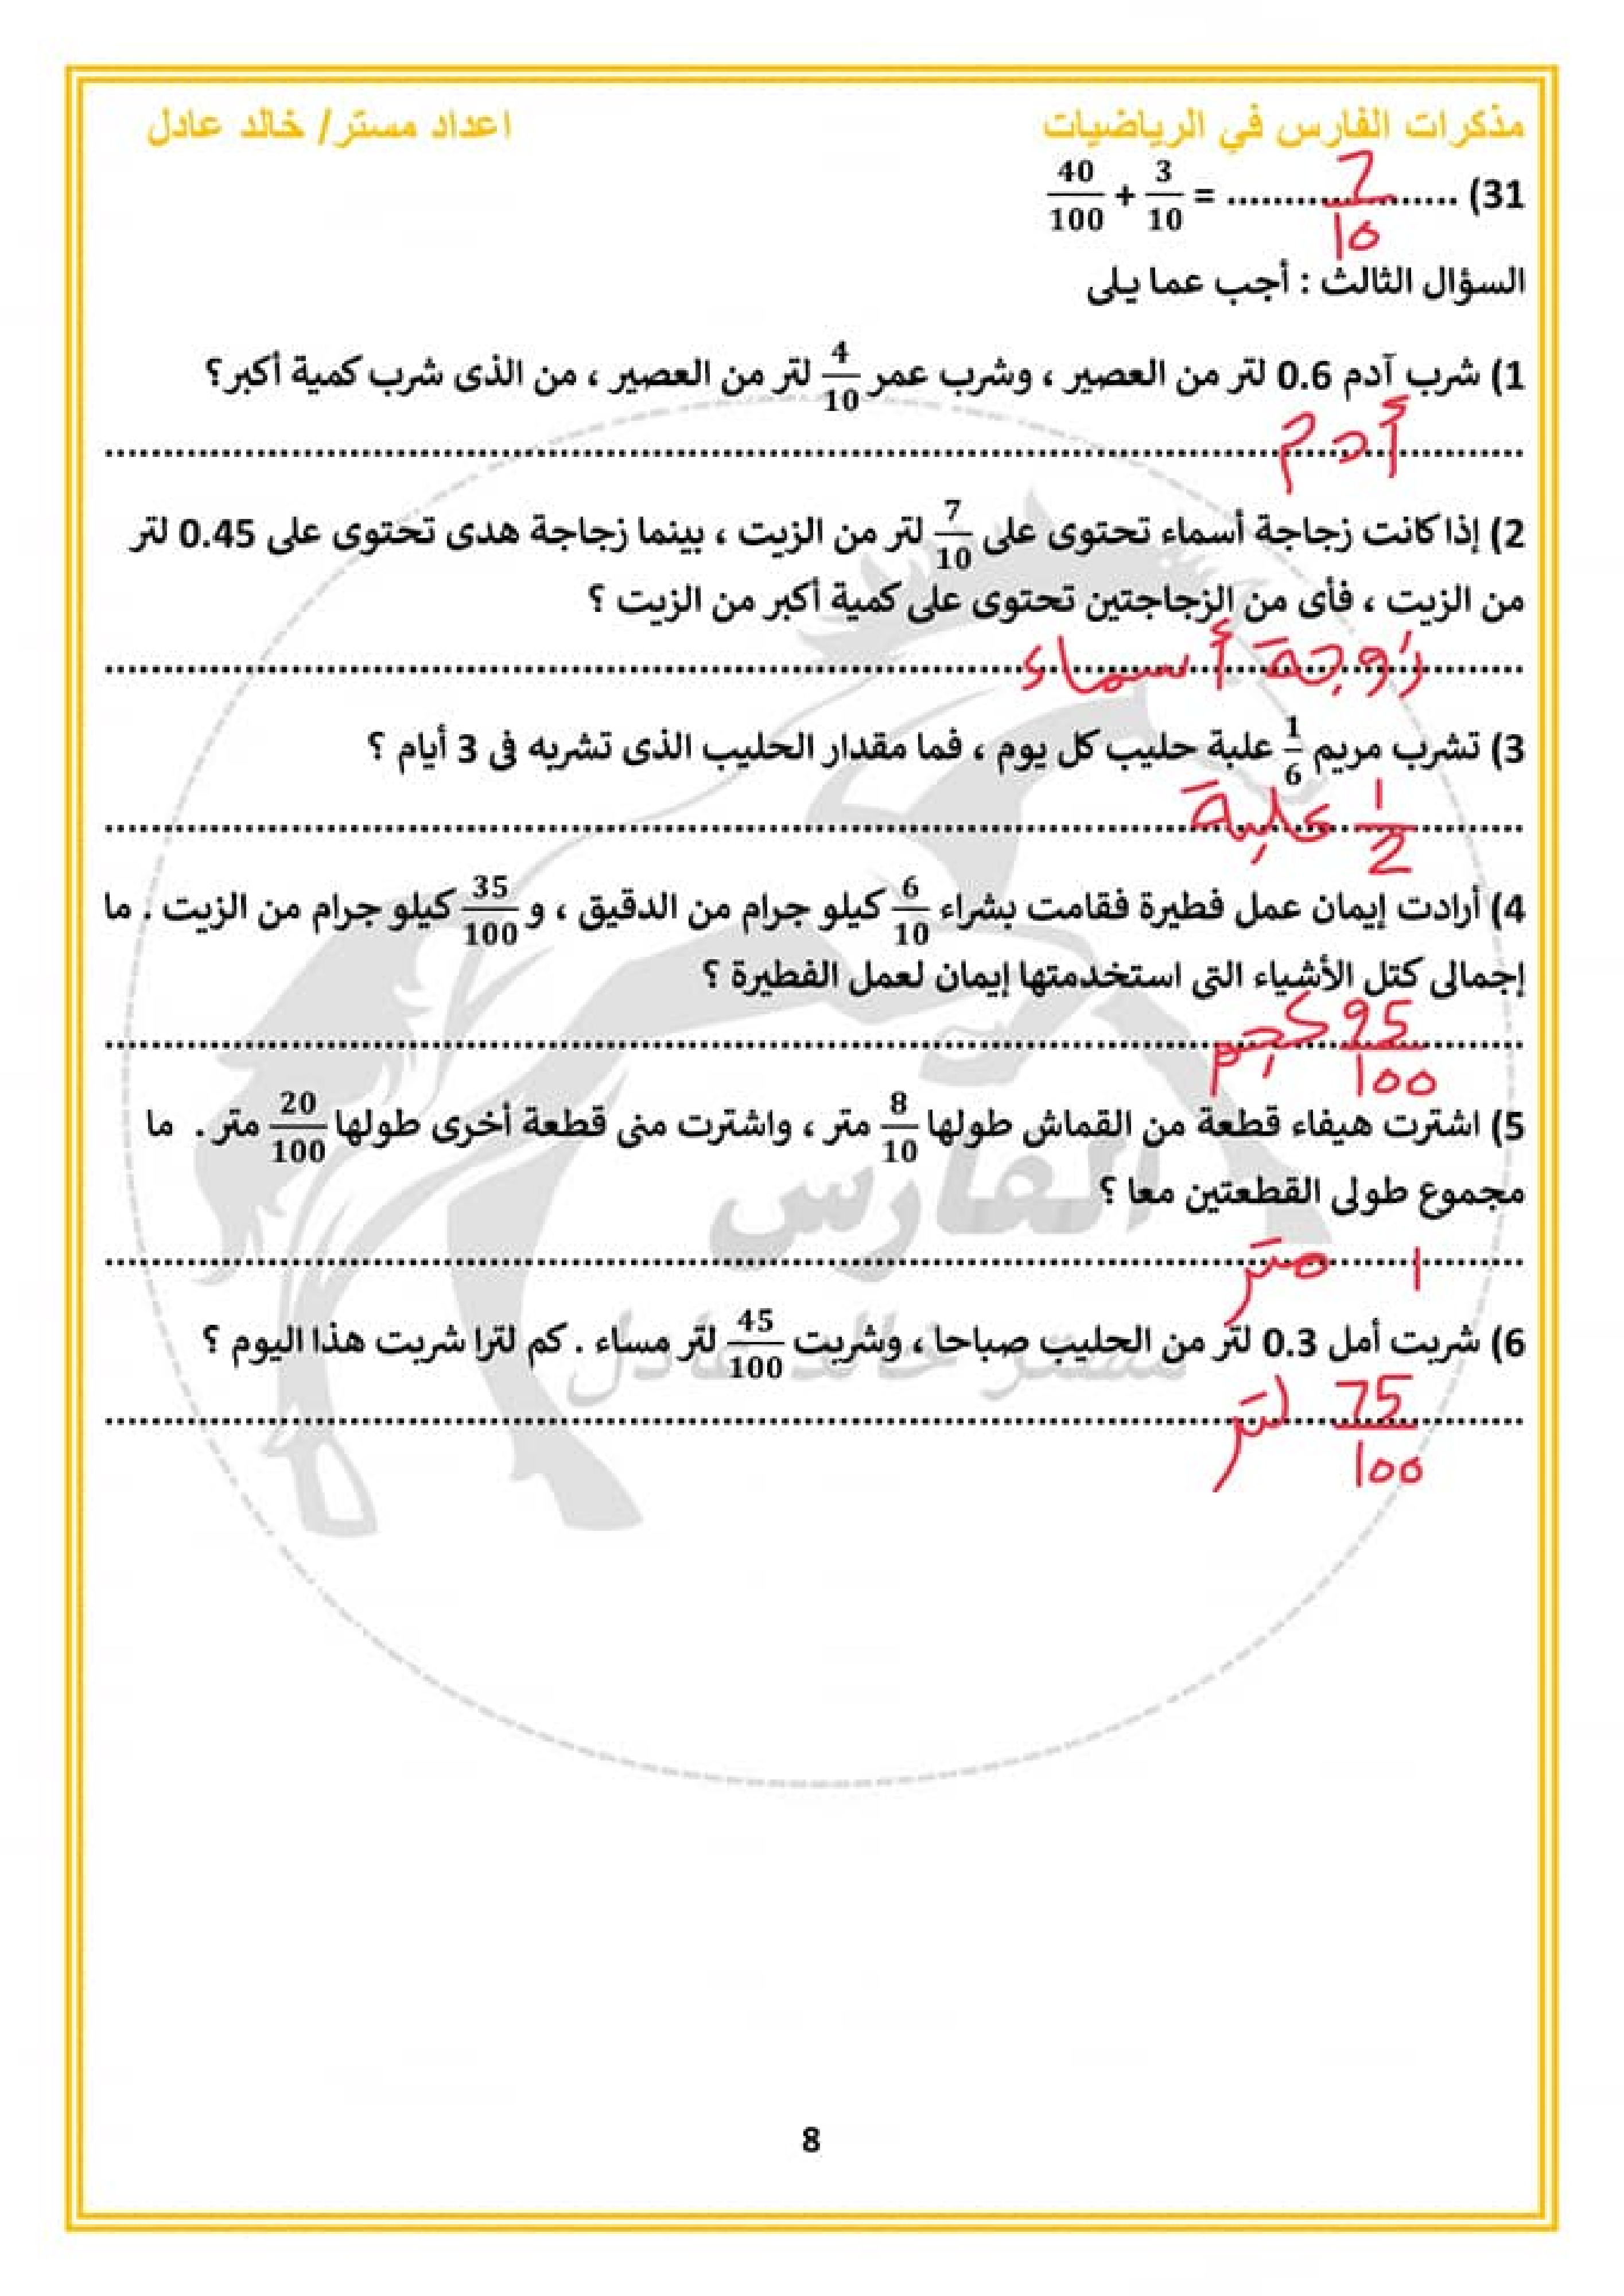 مذكرات الفارس في الرياضيات اعداد مستر/ خالد عادل
31) ........7/10........ = 3/10 + 40/100
السؤال الثالث : أجب عما يلى
1) شرب آدم 0.6 لتر من العصير ، وشرب عمر 4/10 لتر من العصير ، من الذى شرب كمية أكبر؟
أدم
2) إذا كانت زجاجة أسماء تحتوى على 7/10 لتر من الزيت ، بينما زجاجة هدى تحتوى على 0.45 لتر
من الزيت ، فأى من الزجاجتين تحتوى على كمية أكبر من الزيت ؟
أسماء
3) تشرب مريم 1/6 علبة حليب كل يوم ، فما مقدار الحليب الذى تشربه فى 3 أيام ؟
1/2 علبة
4) أرادت إيمان عمل فطيرة فقامت بشراء 6/10 كيلو جرام من الدقيق ، و 35/100 كيلو جرام من الزيت . ما
إجمالى كتل الأشياء التى استخدمتها إيمان لعمل الفطيرة ؟
95/100 كجم
5) اشترت هيفاء قطعة من القماش طولها 8/10 متر ، واشترت منى قطعة أخرى طولها 20/100 متر . ما
مجموع طولى القطعتين معا ؟
1 متر
6) شربت أمل 0.3 لتر من الحليب صباحا ، وشربت 45/100 لتر مساء . كم لترا شربت هذا اليوم ؟
75/100 لتر
الفارس
مستر خالد عادل
8